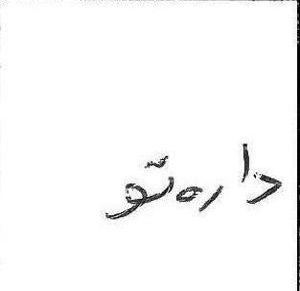 داره تو